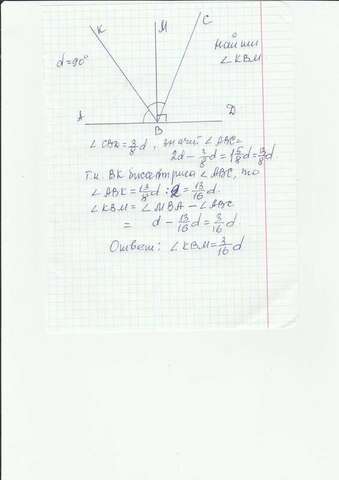 K M C
d=90°
Найти
∠KBM
A B D
∠CBD=3/8 d, значит ∠ABC=
2d-3/8 d=1 5/8 d=13/8 d
Т.к. BK биссектриса ∠ABC, то
∠ABK=13/8 d:2=13/16 d.
∠KBM=∠MBA-∠ABK
= d-13/16 d=3/16 d
Ответ: ∠KBM=3/16 d